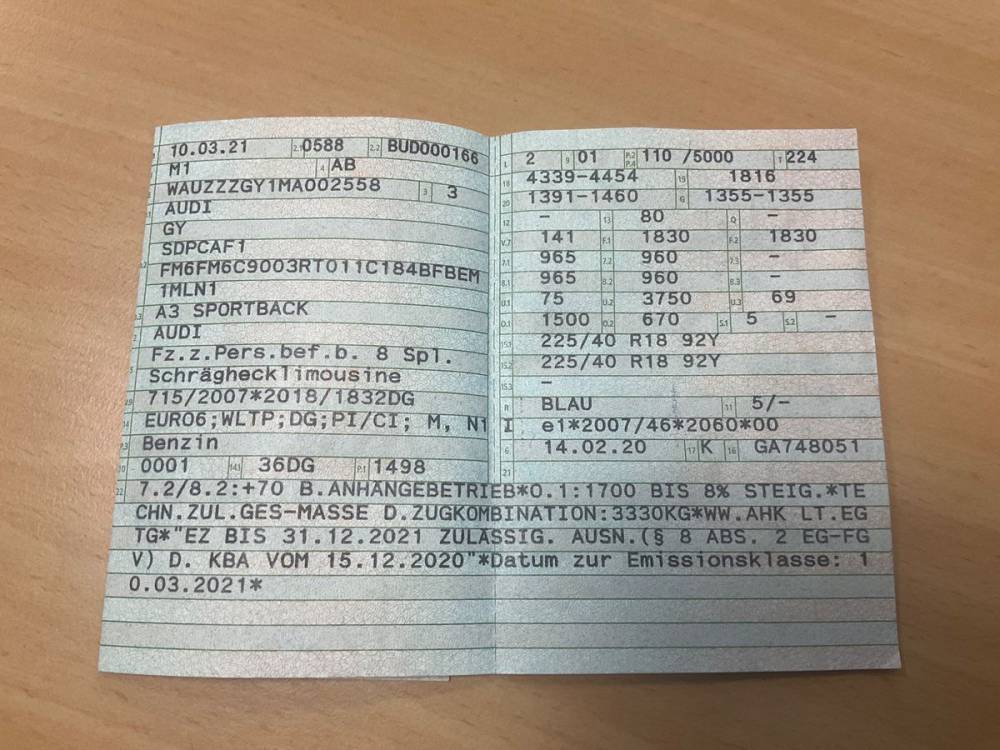 10.03.21 2.1 0588 2.2 BUD000166
M1 4 AB
WAUZZZGY1MA002558 3 3
AUDI
GY
SDPCAF1
FM6FM6C9003RT011C184BFBEM
1MLN1
A3 SPORTBACK
AUDI
Fz.z.Pers.bef.b. 8 Spl.
Schräghecklimousine
715/2007*2018/1832DG
EURO6;WLTP;DG;PI/CI; M, N1 I
Benzin
0001 14.1 36DG P.1 1498
L 2 9 01 P.2 P.4 110 /5000 T 224
18 4339-4454 19 1816
20 1391-1460 G 1355-1355
12 - 13 80 Q -
V.7 141 F.1 1830 F.2 1830
7.1 965 7.2 960 7.3 -
8.1 965 8.2 960 8.3 -
U.1 75 U.2 3750 U.3 69
O.1 1500 O.2 670 S.1 5 S.2 -
15.1 225/40 R18 92Y
15.2 225/40 R18 92Y
15.3 -
R BLAU 11 5/-
e1*2007/46*2060*00
6 14.02.20 17 K 16 GA748051
21
22 7.2/8.2:+70 B.ANHÄNGEBETRIEB*O.1:1700 BIS 8% STEIG.*TE
CHN.ZUL.GES-MASSE D.ZUGKOMBINATION:3330KG*WW.AHK LT.EG
TG*"EZ BIS 31.12.2021 ZULÄSSIG. AUSN.(§ 8 ABS. 2 EG-FG
V) D. KBA VOM 15.12.2020"*Datum zur Emissionsklasse: 1
0.03.2021*